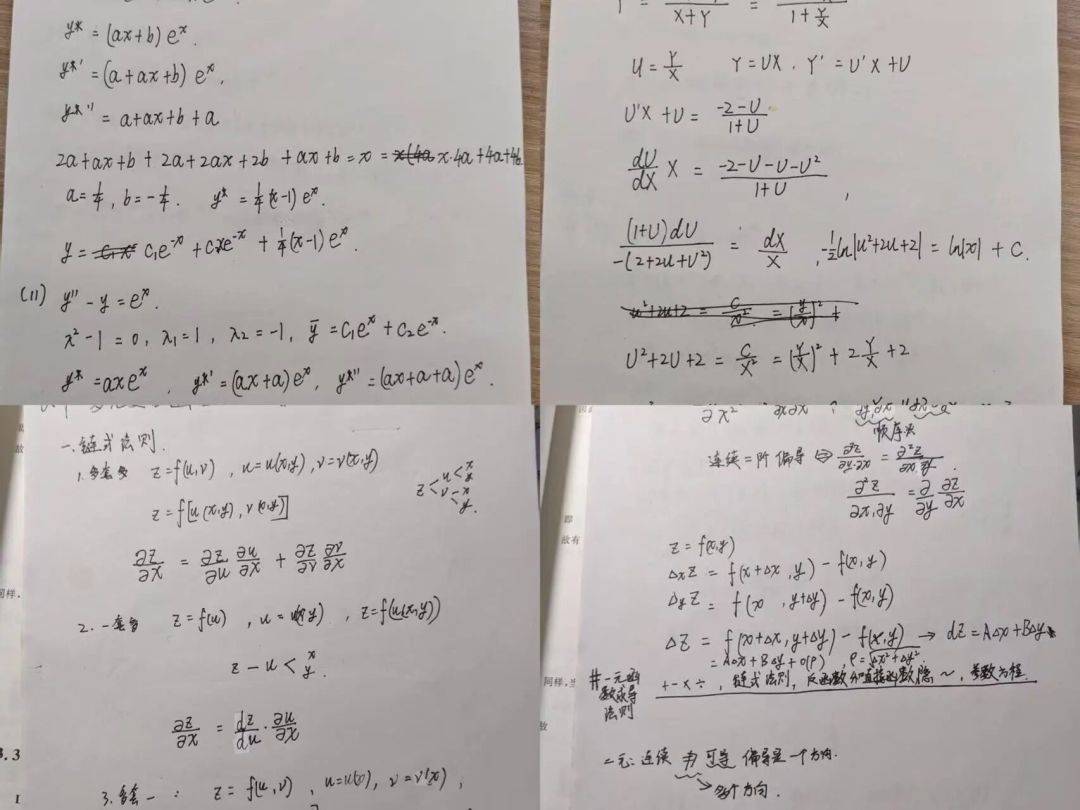 y* = (ax+b) eˣ.
y*' = (a+ax+b) eˣ.
y*'' = a+ax+b+a
2a+ax+b + 2a+2ax+2b + ax+b = x = x·4a+4a+4b
a=1/4, b=-1/4. y* = 1/4(x-1) eˣ.
y = c₁e⁻ˣ + c₂xe⁻ˣ + 1/4(x-1) eˣ.
(11) y''-y=eˣ.
λ²-1=0, λ₁=1, λ₂=-1, ȳ=c₁eˣ+c₂e⁻ˣ.
y*=axeˣ. y*'=(ax+a)eˣ, y*''=(ax+a+a)eˣ.
X+Y = 1+Y/X
U=Y/X Y=UX. Y'=U'X+U
U'X+U = (-2-U)/(1+U)
dU/dX X = (-2-U-U-U²)/(1+U),
(1+U)dU/-(2+2u+U²) = dX/X, -1/2 ln|u²+2u+2| = ln|x| + C.
U²+2U+2 = C/X² = (Y/X)²+2Y/X+2
一.链式法则.
1.多套多 z=f(u,v), u=u(x,y), v=v(x,y)
z=f[u(x,y), v(x,y)]
z<u<x y
v-x y
∂z/∂x = ∂z/∂u ∂u/∂x + ∂z/∂v ∂v/∂x
2.一套多 z=f(u), u=u(x,y), z=f(u(x,y))
z-u<x y.
∂z/∂x = dz/du·∂u/∂x
3.多套一: z=f(u,v), u=u(x), v=v(x),
3.3
顺序无关
连续二阶偏导⇔∂²z/∂y∂x = ∂²z/∂x∂y.
∂²z/∂x,∂y = ∂/∂y ∂z/∂x
z=f(x,y)
Δxz = f(x+Δx,y)-f(x,y)
Δyz = f(x,y+Δy)-f(x,y)
Δz = f(x+Δx,y+Δy)-f(x,y) → dz=AΔx+BΔy
=AΔx+BΔy+o(ρ), ρ=√Δx²+Δy²
#一元函数求导法则
+-×÷, 链式法则, 反函数和直接函数, 隐~, 参数方程.
二元: 连续 可导 偏导是一个方向.
→多个方向.
即
故有
同样,
故